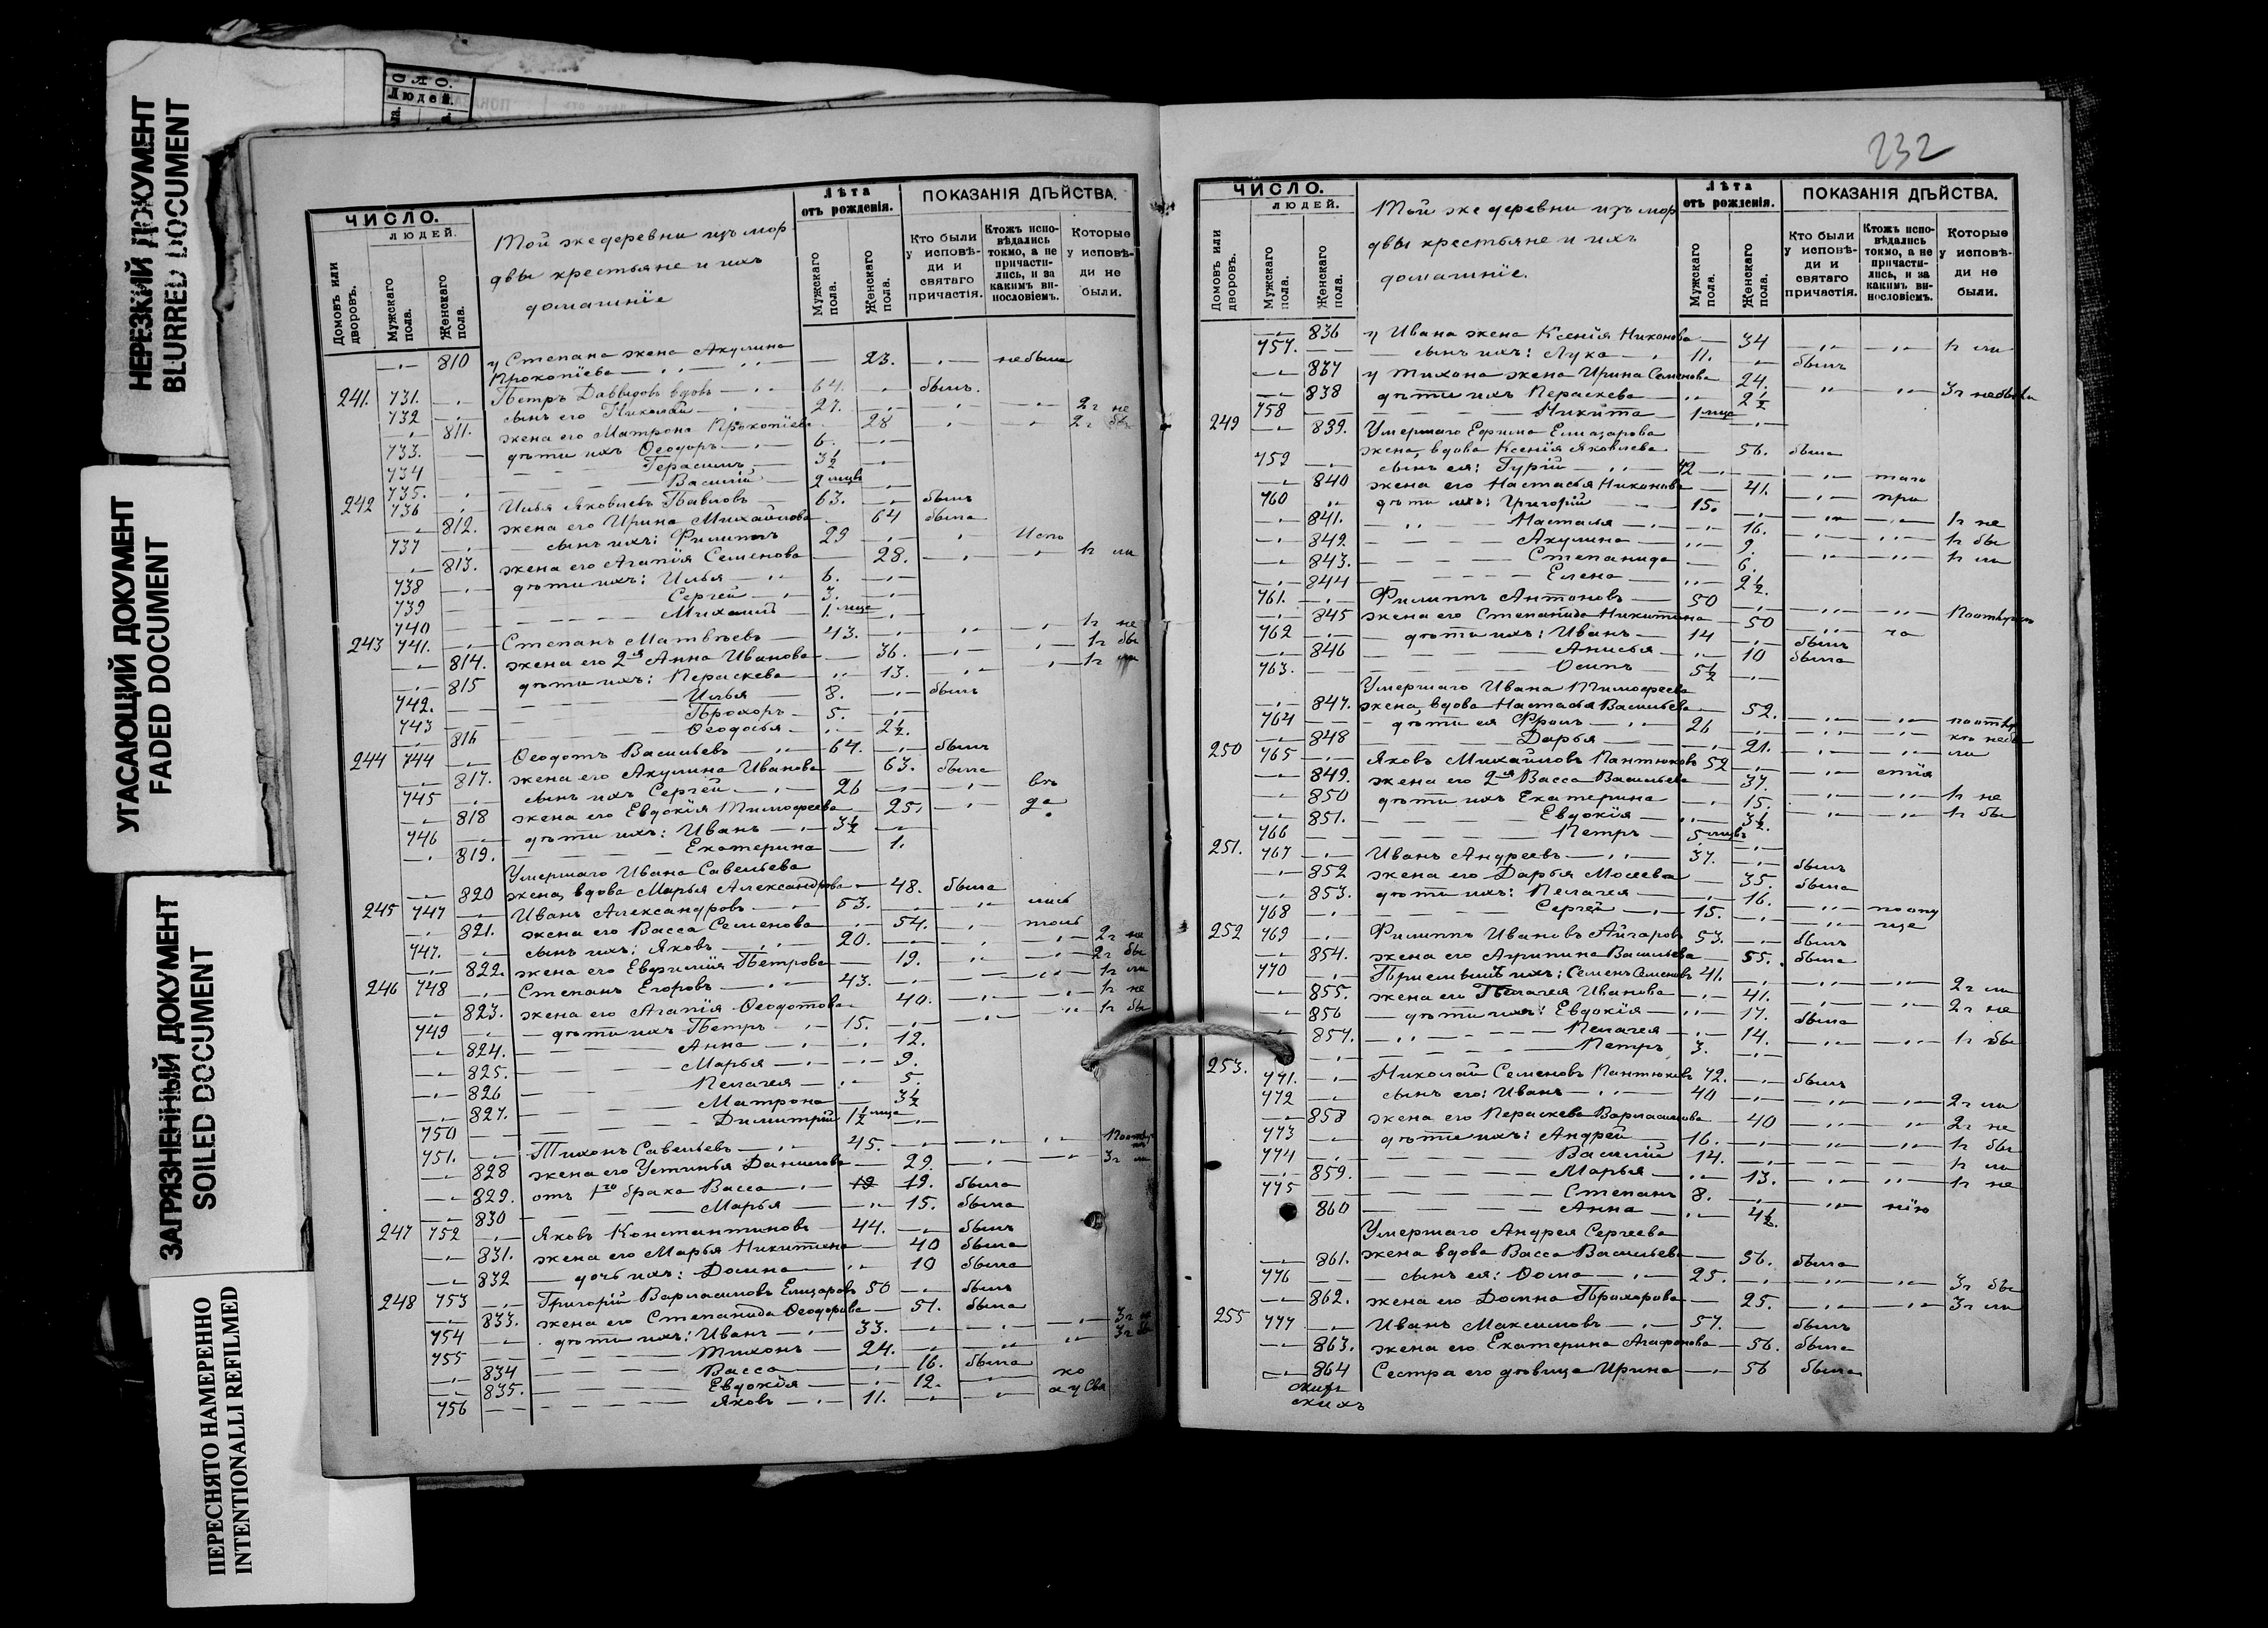 НЕРЕЗКИЙ ДОКУМЕНТ
BLURRED DOCUMENT
УГАСАЮЩИЙ ДОКУМЕНТ
FADED DOCUMENT
ЗАГРЯЗНЕННЫЙ ДОКУМЕНТ
SOILED DOCUMENT
ПЕРЕСНЯТО НАМЕРЕННО
INTENTIONALLI REFILMED
О Л О.
Людей.
ЧИСЛО.
ЛЮДЕЙ.
Домовъ или дворовъ.
Мужскаго пола.
Женскаго пола.
Той же деревни изъ мор
двы крестьяне и ихъ
домашніе
Лѣта
отъ рожденія.
Мужскаго пола.
Женскаго пола.
ПОКАЗАНІЯ ДѢЙСТВА.
Кто были у исповѣди и святаго причастія.
Ктожъ исповѣдались токмо, а не причастились, и за какимъ винословіемъ.
Которые у исповѣди не были.
810 у Степана жена Акулина
Прокопіева 23. не была
241. 731. Петръ Давыдовъ вдовъ 64. былъ.
732 сынъ его Николай 27. 2 г не
811. жена его Матрона Прокопіева 28 2 г
733. дѣти ихъ Ѳеодоръ 6.
734 Герасимъ 3½
735. Василій 2 мцѣ
242 736 Илья Яковлевъ Павловъ 63. былъ
812. жена его Ирина Михайлова 64 была
737 сынъ ихъ: Филиппъ 29 Испо
813. жена его Агапія Семенова 28. 1 г ли
738 дѣти ихъ: Илья 6.
739 Сергей 3.
740 Михаилъ 1 мцо
243 741. Степанъ Матвѣевъ 43. 1 г не
814. жена его 2ая Анна Иванова 36. 1 г бы
815 дѣти ихъ: Параскева 13. 1 г ли
742. Илья 8. былъ
743 Прохоръ 5.
816 Ѳеодосья 2½.
244 744 Ѳеодотъ Васильевъ 64. былъ
817. жена его Акулина Иванова 63. была
745 сынъ ихъ Сергей 26 въ
818 жена его Евдокія Тимофеева 25. да
746 дѣти ихъ: Иванъ 3½
819. Екатерина 1.
Умершаго Ивана Савельева
820 жена, вдова Марья Александрова 48. была
245 747 Иванъ Александровъ 53. лись
821. жена его Васса Семенова 54. толь
747. сынъ ихъ: Яковъ 20. 2 г не
822. жена его Евфимія Петрова 19. 2 г бы
246 748 Степанъ Егоровъ 43. 1 г ли
823. жена его Агапія Ѳеодотова 40. 1 г не
749 дѣти ихъ Петръ 15. 1 г бы
824. Анна 12.
825. Марья 9.
826 Пелагея 5.
827. Матрона 3½
750 Димитрій 1½ мца
751. Тихонъ Савельевъ 45.
828 жена его Устинья Данилова 29. 3 г ли
829. отъ 1го брака Васса 19. была
830 Марья 15. была
247 752 Яковъ Константиновъ 44. былъ
831. жена его Марья Никитина 40 была
832 дочь ихъ: Домна 10 была
248 753 Григорій Варламовъ Елизаровъ 50 былъ
833. жена его Степанида Ѳеодорова 51. была
754 дѣти ихъ: Иванъ 33. 3 г не
755 Тихонъ 24. 3 г бы
834 Васса 16. была
835. Евдокія 12. ко
756 Яковъ 11. а у Свя
232
ЧИСЛО.
ЛЮДЕЙ.
Домовъ или дворовъ.
Мужскаго пола.
Женскаго пола.
Той же деревни изъ мор
двы крестьяне и ихъ
домашніе.
Лѣта
отъ рожденія.
Мужскаго пола.
Женскаго пола.
ПОКАЗАНІЯ ДѢЙСТВА.
Кто были у исповѣди и святаго причастія.
Ктожъ исповѣдались токмо, а не причастились, и за какимъ винословіемъ.
Которые у исповѣди не были.
836 у Ивана жена Ксенія Никонова 34 1 г ли
757. сынъ ихъ: Лука 11. былъ
837 у Тихона жена Ирина Семенова 24. 3 г не были
838 дѣти ихъ Параскева 2½
758 Никита 1 мца
249 839. Умершаго Ефима Елизарова
жена, вдова Ксенія Яковлева 56. была
759 сынъ ея: Гурій 42
840 жена его Настасья Никонова 41. таго
760 дѣти ихъ: Григорій 15. при
841. Настасья 16. 1 г не
842. Акулина 9. 1 г бы
843. Степанида 6. 1 г ли
844 Елена 2½.
761. Филиппъ Антоновъ 50
845 жена его Степанида Никитина 50
762 дѣти ихъ: Иванъ 14 былъ ча
846 Анисья 10 была
763. Осипъ 5½
Умершаго Ивана Тимофеева
847. жена, вдова Настасья Васильева 52.
764 дѣти ея Фролъ 26
848 Дарья 21. ли
250 765 Яковъ Михайловъ Пантюковъ 52
849. жена его 2ая Васса Васильева 37. стія
850 дѣти ихъ Екатерина 15. 1 г не
851. Евдокія 3½. 1 г бы
766 Петръ 5 мцвъ
251. 767 Иванъ Андреевъ 37. былъ
852 жена его Дарья Мосеева 35. была
853. дѣти ихъ: Пелагея 16.
768 Сергей 15. по опу
252 769 Филиппъ Ивановъ Айгаровъ 53. былъ ще
854. жена его Агрипина Васильева 55. была
770 Пріемышъ ихъ: Семенъ Семеновъ 41.
855. жена его Пелагея Иванова 41. 2 г ли
856 дѣти ихъ: Евдокія 17. была 2 г не
857. Пелагея 14.
Петръ 3. 1 г бы
253. 771. Николай Семеновъ Пантюковъ 72. былъ
772 сынъ его: Иванъ 40 2 г ли
858 жена его Параскева Варламова 40 2 г не
773 дѣти ихъ: Андрей 16. 1 г бы
774 Василій 14. 1 г ли
859. Марья 13. 1 г не
775 Степанъ 8.
860 Анна 4½. нію
Умершаго Андрея Сергеева
861. жена вдова Васса Васильева 56. была
776 сынъ ея: Ѳома 25. 3 г бы
862. жена его Домна Прохорова 25. 3 г ли
255 777 Иванъ Максимовъ 57. былъ
863. жена его Екатерина Агафонова 56. была
864 Сестра его дѣвица Ирина 56 была